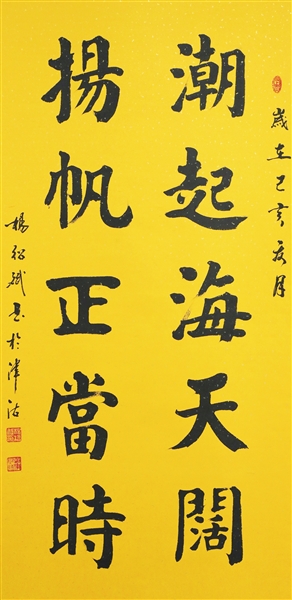 歲在己亥夏月
潮起海天闊
揚帆正當時
楊紹斌書於津沽